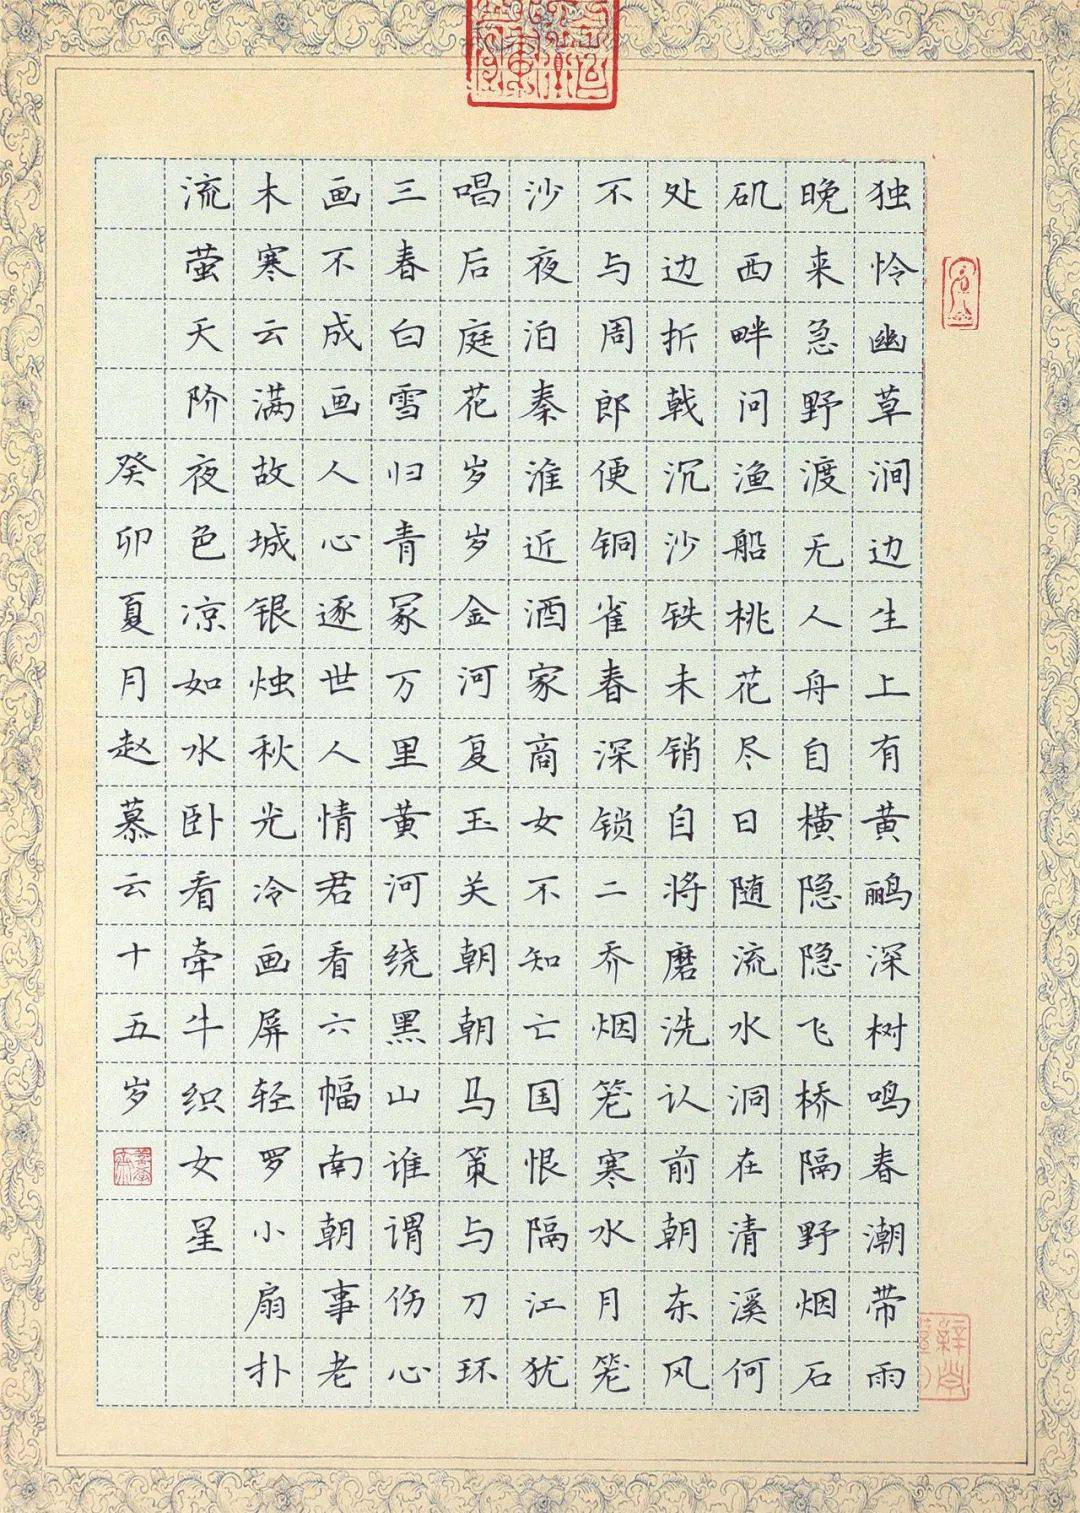 独怜幽草涧边生上有黄鹂深树鸣春潮带雨
晚来急野渡无人舟自横隐隐飞桥隔野烟石
矶西畔问渔船桃花尽日随流水洞在清溪何
处边折戟沉沙铁未销自将磨洗认前朝东风
不与周郎便铜雀春深锁二乔烟笼寒水月笼
沙夜泊秦淮近酒家商女不知亡国恨隔江犹
唱后庭花岁岁金河复玉关朝朝马策与刀环
三春白雪归青冢万里黄河绕黑山谁谓伤心
画不成画人心逐世人情君看六幅南朝事老
木寒云满故城银烛秋光冷画屏轻罗小扇扑
流萤天阶夜色凉如水卧看牵牛织女星
癸卯夏月赵慕云十五岁